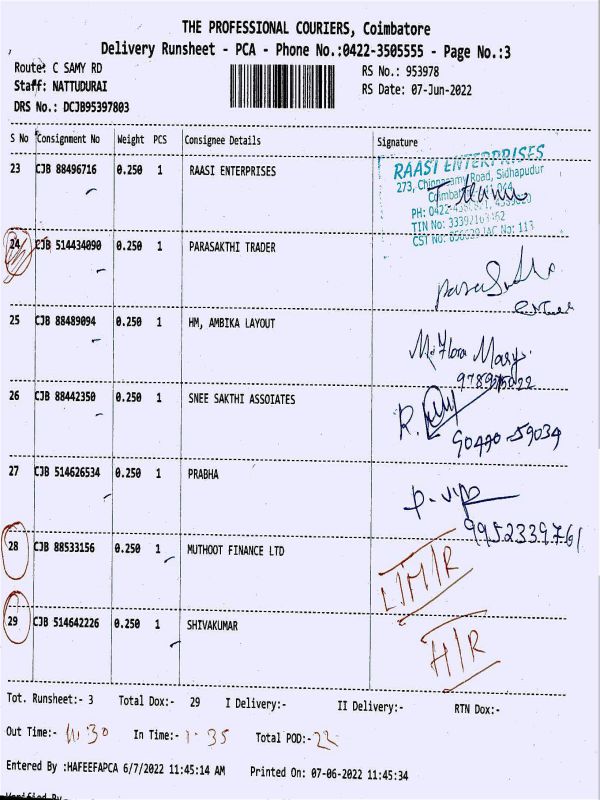 THE PROFESSIONAL COURIERS, Coimbatore
Delivery Runsheet - PCA - Phone No.:0422-3505555 - Page No.:3
Route: C SAMY RD
RS No.: 953978
Staff: NATTUDURAI
RS Date: 07-Jun-2022
DRS No.: DCJB95397803
S No Consignment No Weight PCS Consignee Details Signature
23 CJB 88496716 0.250 1 RAASI ENTERPRISES
RAASI ENTERPRISES
273, Chinnasamy Road, Sidhapudur
PH: 0422-
TIN No:
CST No: No: 113
24 CJB 514434090 0.250 1 PARASAKTHI TRADER
25 CJB 88489094 0.250 1 HM, AMBIKA LAYOUT
M. Flora Mary
26 CJB 88442350 0.250 1 SNEE SAKTHI ASSOIATES
R.
27 CJB 514626534 0.250 1 PRABHA
9952339761
28 CJB 88533156 0.250 1 MUTHOOT FINANCE LTD
29 CJB 514642226 0.250 1 SHIVAKUMAR
H/R
Tot. Runsheet:- 3 Total Dox:- 29 I Delivery:- II Delivery:- RTN Dox:-
Out Time:- 11:30 In Time:- 1:35 Total POD:- 22
Entered By :HAFEEFAPCA 6/7/2022 11:45:14 AM Printed On: 07-06-2022 11:45:34